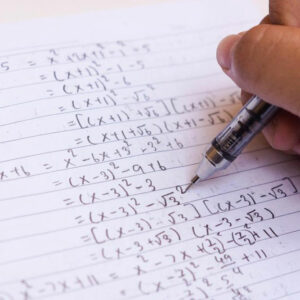 5 = x² + 2x + 1 - 1 - 5
= (x+1)² - 1 - 5
= (x+1)² - 6
= (x+1)² - √6²
= [(x+1) + √6] [(x+1) - √6]
= (x+1+√6) (x+1-√6)
x + 6 = x² - 6x + 3² - 3² + 6
= (x-3)² - 9 + 6
= (x-3)² - 3
= (x-3)² - √3²
= [(x-3) + √3] [(x-3) - √3]
= (x-3+√3) (x-3-√3)
x² - 7x + 11 = x² - 7x + (7/2)² - (7/2)² + 11
= (x - 7/2)² - 49/4 + 11
= (x - 7/2)² - 5/4